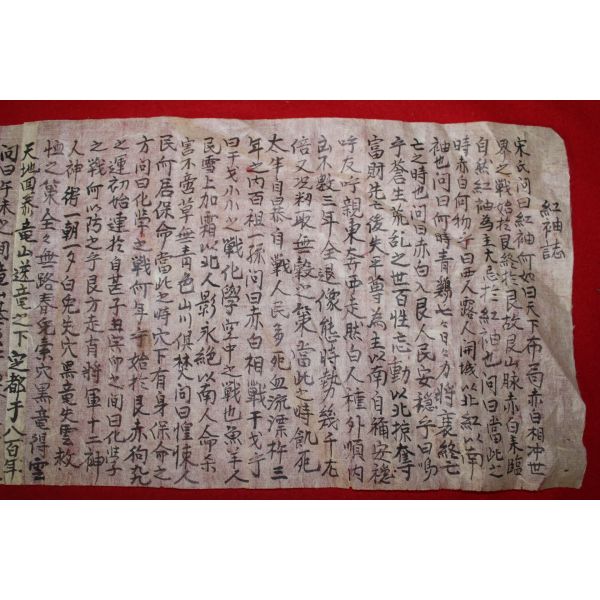 紅袖誌
宋氏問曰紅袖何如曰天下布局赤白相冲世
界之戰始於艮終於艮故艮山脉赤白來臨
自然紅袖為主大忌於紅袖也問曰當此之
時赤白何物乎曰西人露人開城以北紅以南
袖也問曰何時青鷄七月七日方時變終亡
亡之時也問曰赤白入艮人民安穩乎曰嗚
乎蒼生荒乱之世百姓忘動以北掠奪
富財先亡後失平等為主以南自稱安穩
呼友呼親東奔西走然白人種外順內
出不数三年全退像態時勢幾千左
倍又沒籾取無穀以菜當此之時飢死
太半自暴自戰人民多死血流漂杵三
年之內百祖一孫問曰赤白相戰干戈乎
曰干戈小小之戰化學空中之戰也魚羊人
民雪上加霜以北人影永絕以南人命
害不壹草無青色山川俱焚人問曰惶悚人
民何居保命當此之時穴下有身保命之
方問曰化學之戰何年乎始於艮赤狗九
之運初始連於自甚子丑字仰之問曰化學
之戰何以防之乎艮方走有將軍十二神
人神術一朝一夕白兎失穴黑竜失雲救
恤之策全全無路春兎奪穴黑竜得雲
天地回泰竜山送竜之下定都于八百年
問曰午未